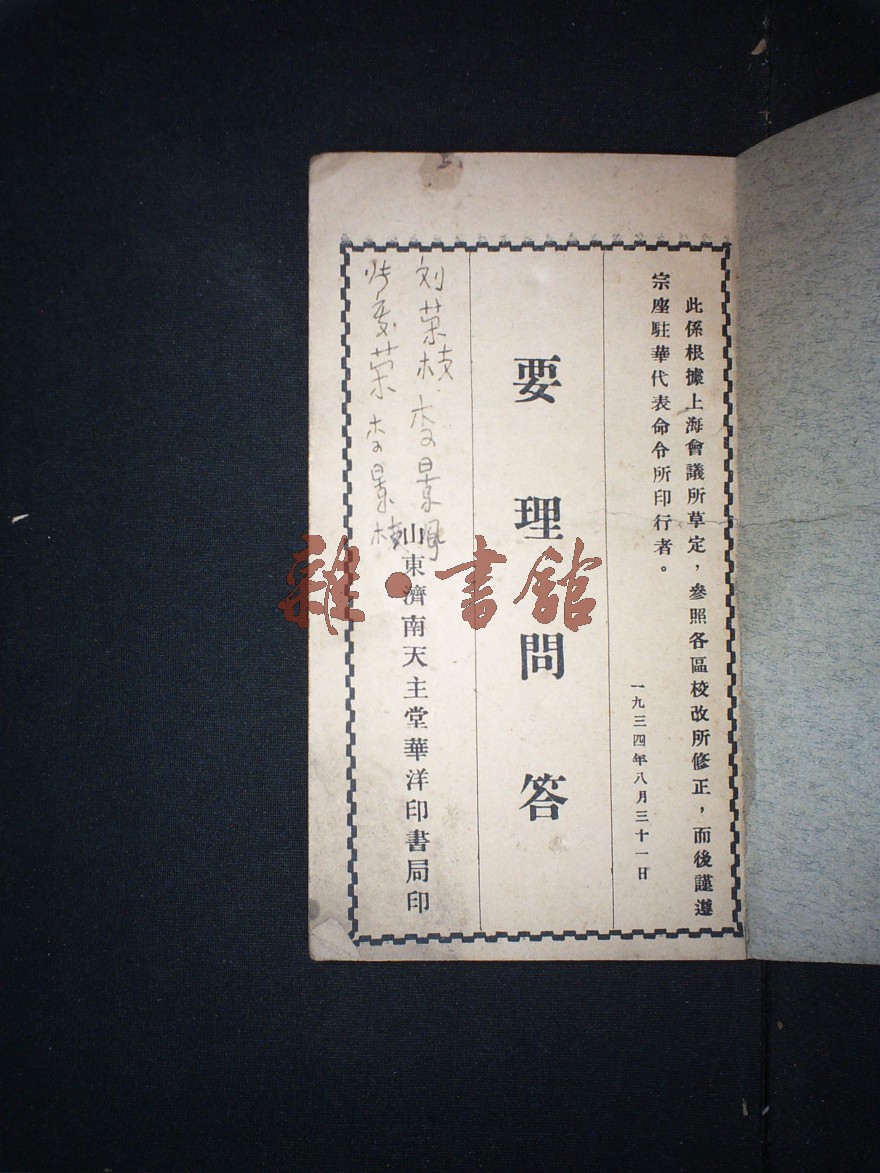 此係根據上海會議所草定，參照各區校改所修正，而後謹遵
宗座駐華代表命令所印行者。
一九三四年八月三十一日
要理問答
刘荣枝 李景
荣 李景枝
山東濟南天主堂華洋印書局印
雜·書館